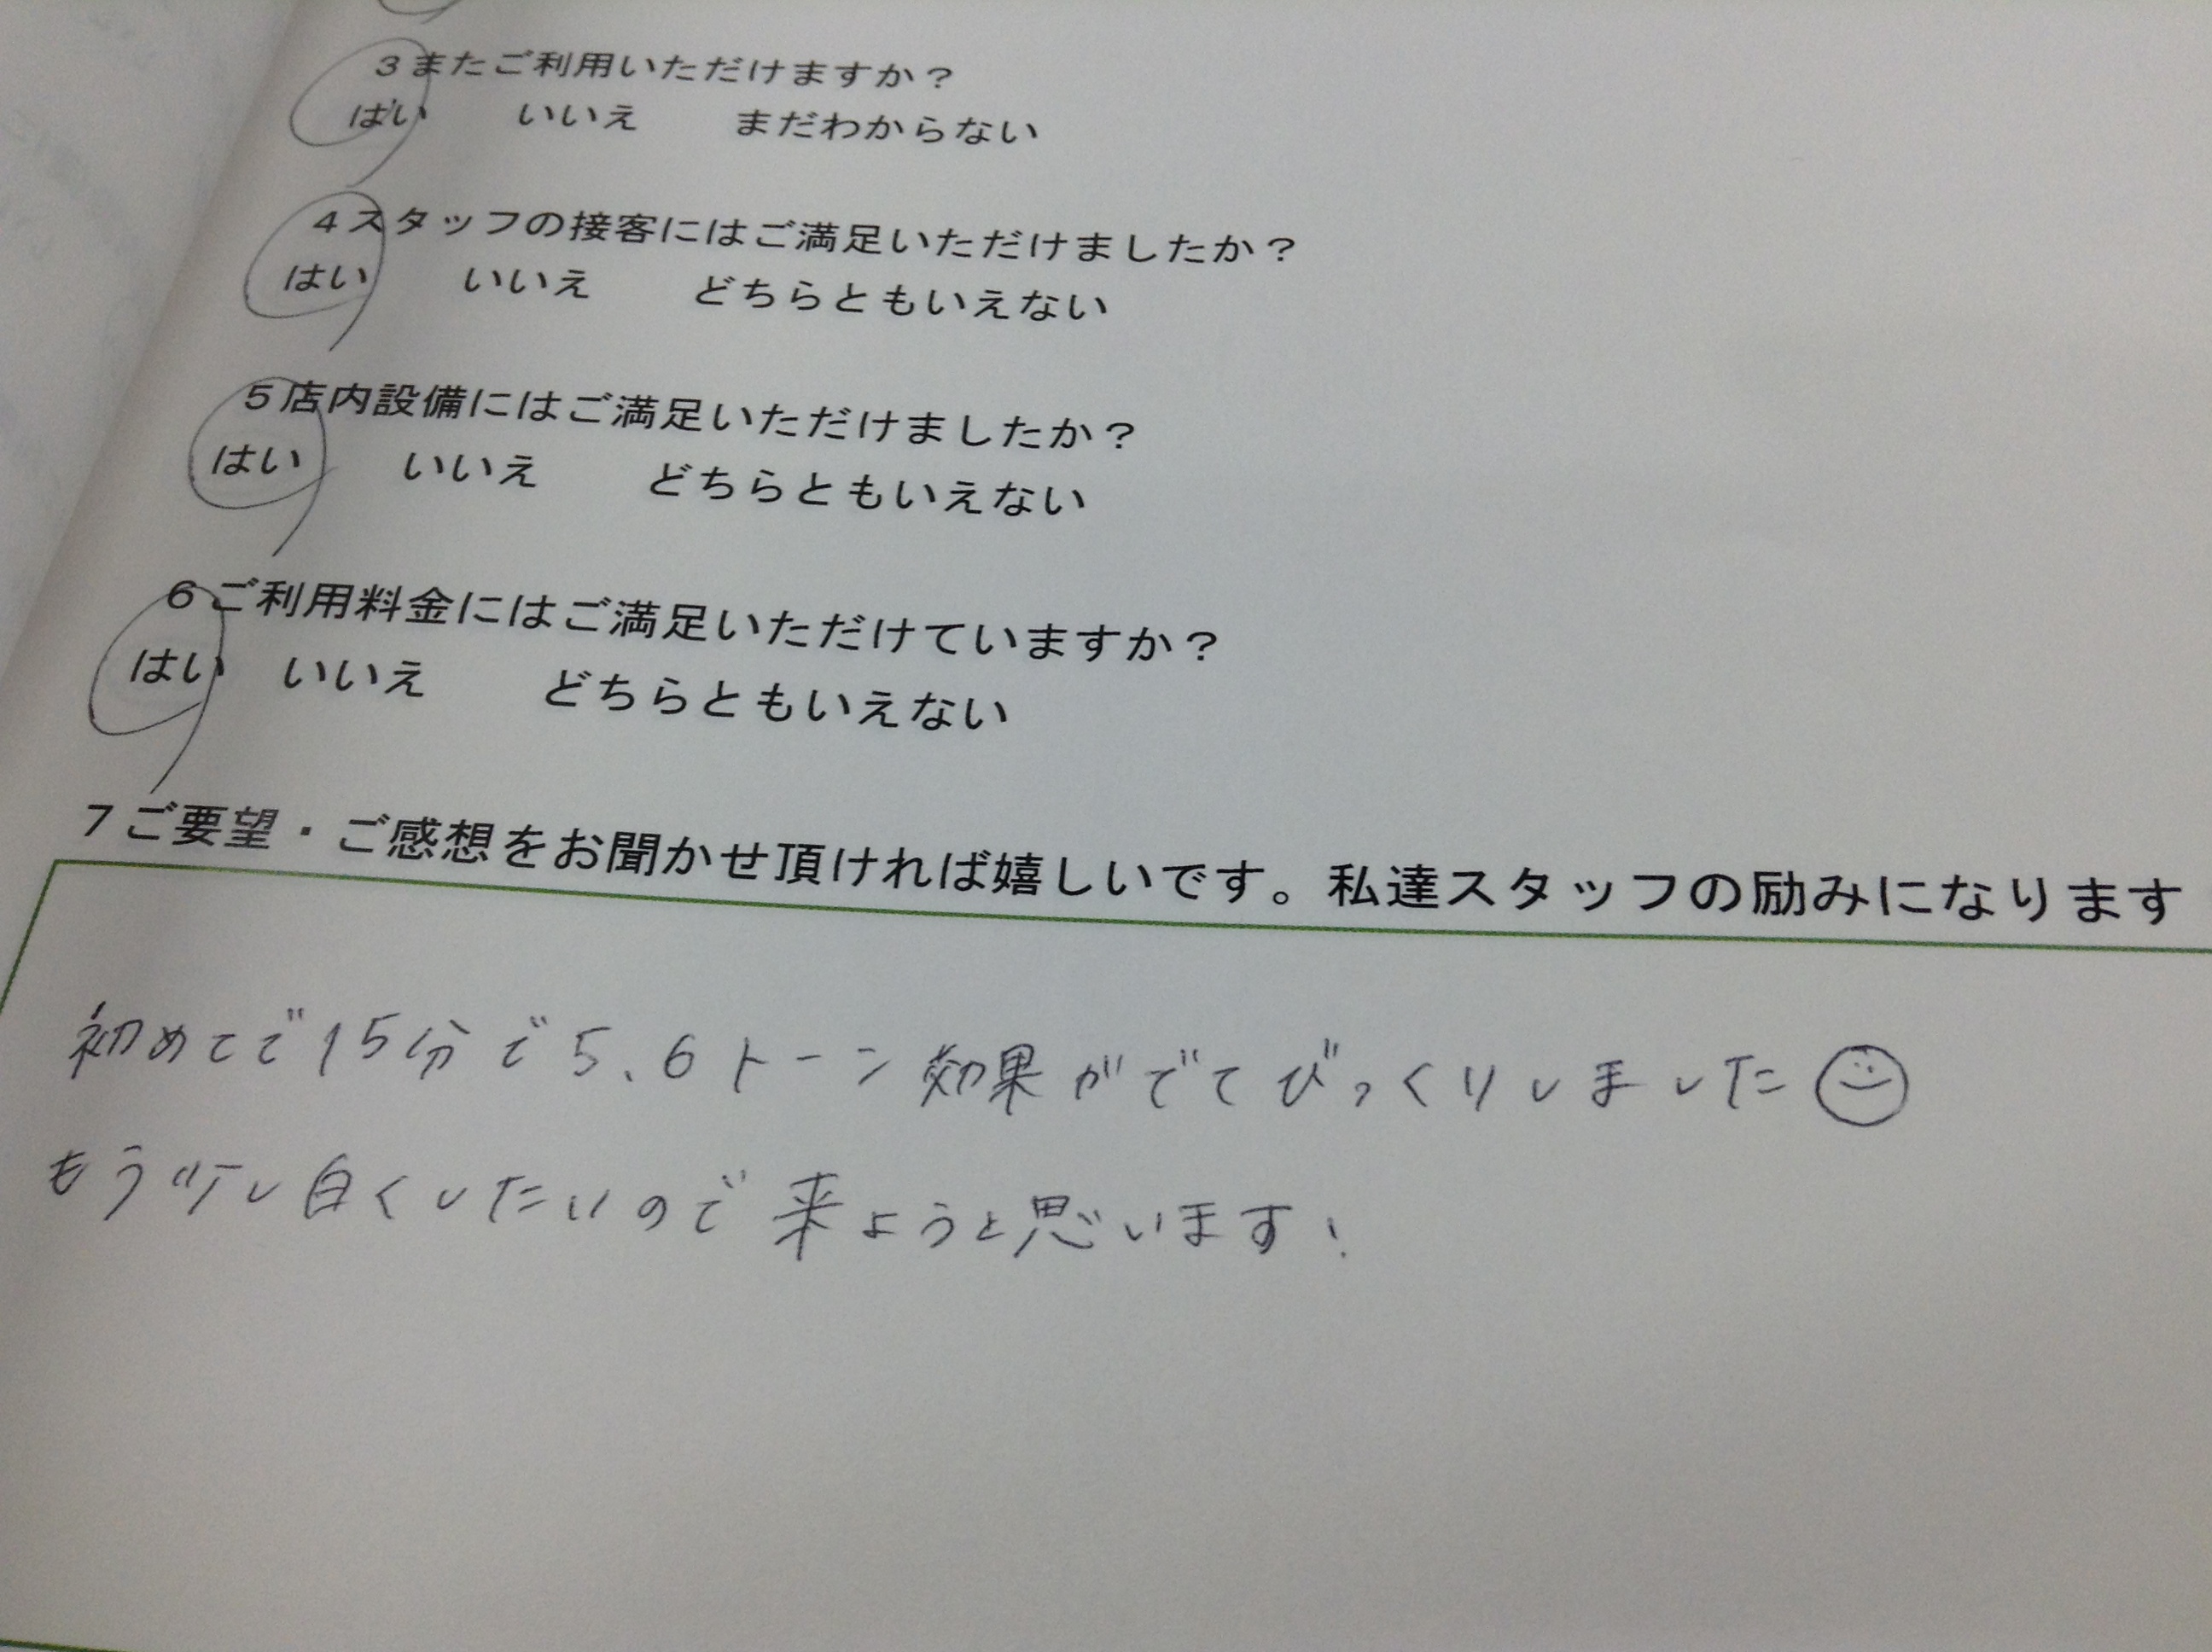 3またご利用いただけますか?
はい いいえ まだわからない
4スタッフの接客にはご満足いただけましたか?
はい いいえ どちらともいえない
5店内設備にはご満足いただけましたか?
はい いいえ どちらともいえない
6ご利用料金にはご満足いただけていますか?
はい いいえ どちらともいえない
7ご要望・ご感想をお聞かせ頂ければ嬉しいです。私達スタッフの励みになります
初めてで15分で5、6トーン効果がでてびっくりしました
もう少し白くしたいので来ようと思います!